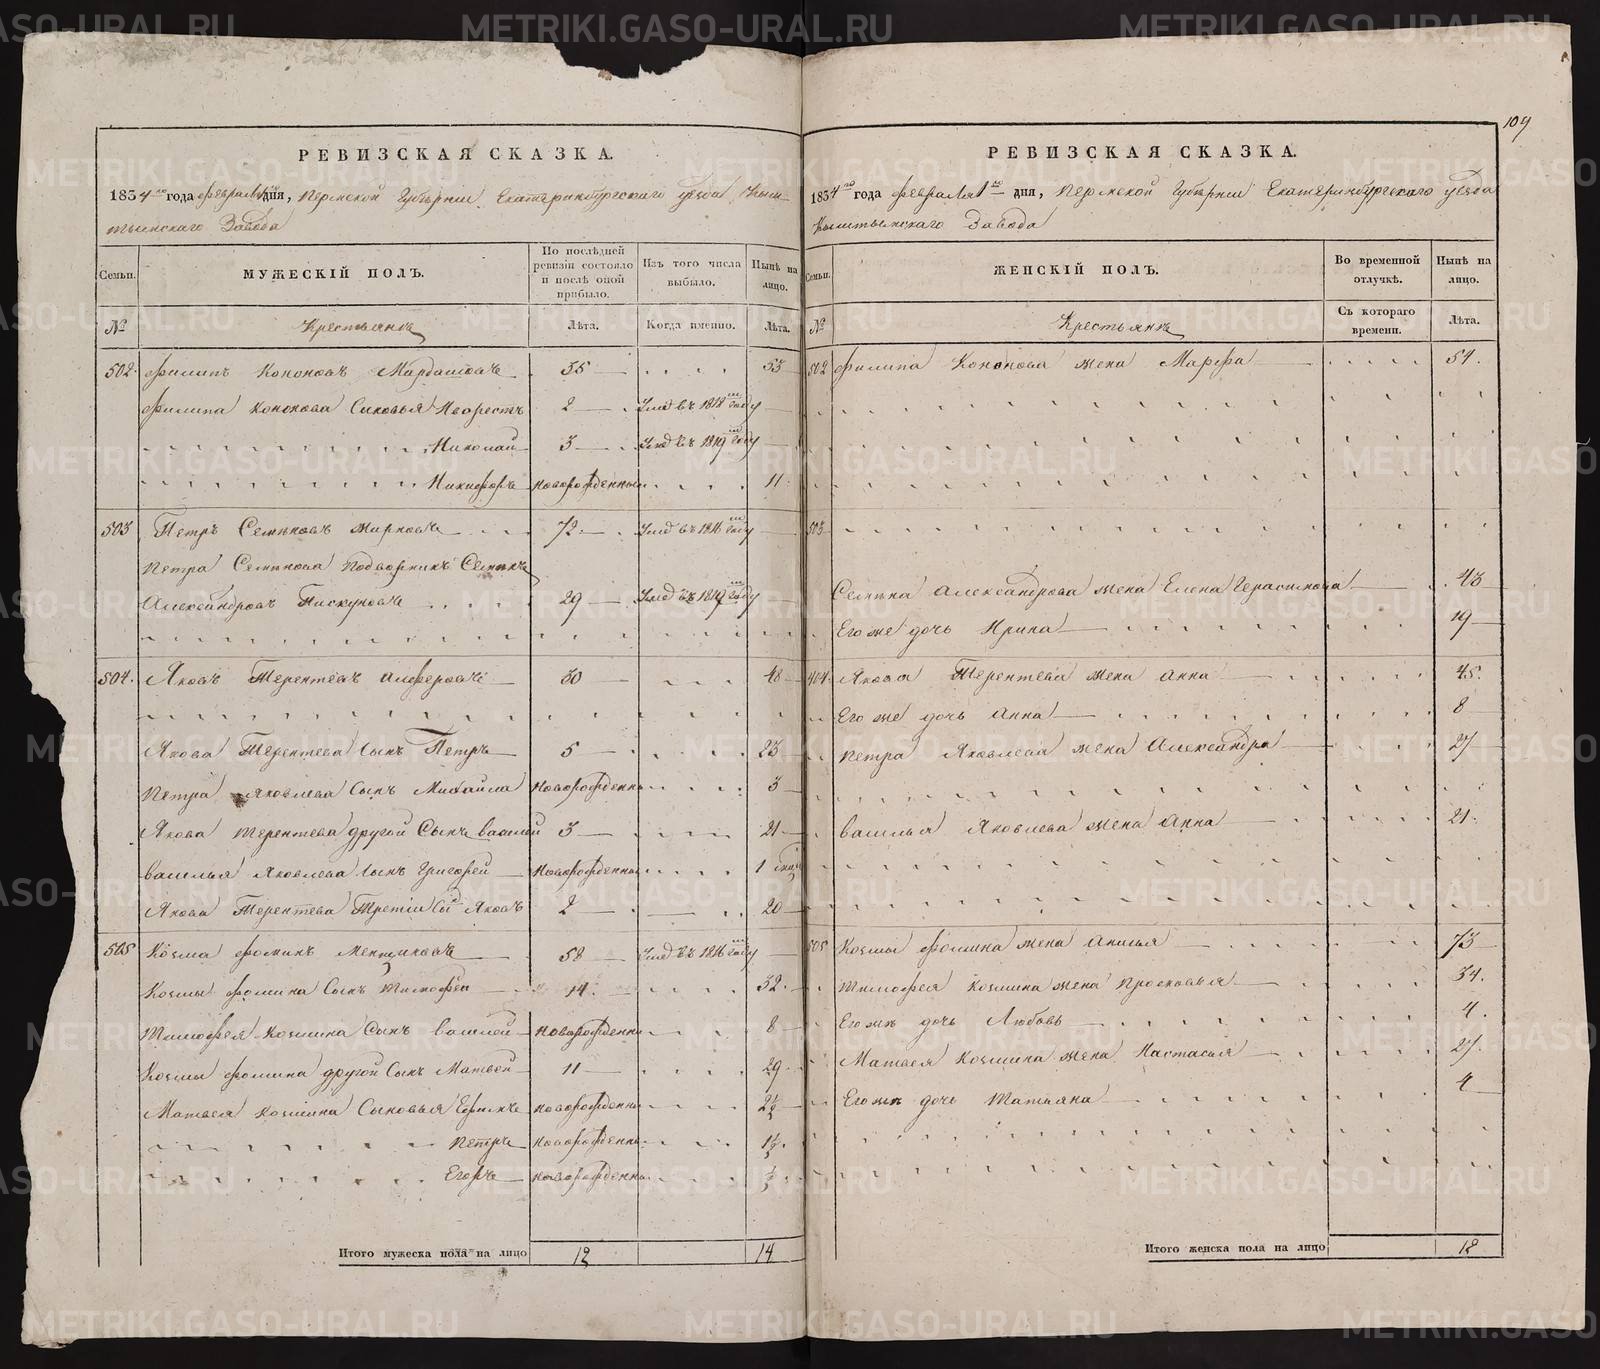 METRIKI.GASO-URAL.RU
109
РЕВИЗСКАЯ СКАЗКА.
1834 го года февраля дня, Пермской Губернии Екатеринбургского уезда Кыш-
тымскаго Завода
Семьи. МУЖЕСКІЙ ПОЛЪ. По послѣдней ревизіи состояло и послѣ оной прибыло. Изъ того числа выбыло. Нынѣ на лицо.
№ Крестьянъ Лѣта. Когда именно. Лѣта.
502 Филипъ Кононовъ 35 53
Филипа Кононова Сыновья 2 Умеръ въ 1818 году
Николай 3 Умеръ въ 1819 году
Никифоръ новорожденный 11
503 Петръ Семеновъ Жирновъ 72 Умеръ въ 1816 году
Петра Семенова Подворникъ Семенъ
Александровъ Пискуновъ 29 Умеръ въ 1819 году
504 Яковъ Терентевъ Алферовъ 30 48
Якова Терентева Сынъ Петръ 5 23
Петра Яковлева Сынъ Михайла Новорожденны 3
Якова Терентева другой Сынъ василей 3 21
василья Яковлева Сынъ Григорей Новорожденны 1
Якова Терентева Третiи Яковъ 2 20
505 Козма Фоминъ Меншиковъ 58 Умеръ въ 1816 году
Козмы Фомина Сынъ Тимофей 14 32
Тимофея Козмина Сынъ василей Новорожденны 8
Козмы Фомина другой Сынъ Матвей 11 29
Матвея Козмина Сыновья Ефимъ новорожденны 2½
Петръ новорожденны 1½
Егоръ новорожденны ½
Итого мужеска пола на лицо 12 14
РЕВИЗСКАЯ СКАЗКА.
1834 го года февраля 1 го дня, Пермской Губернии Екатеринбургскаго уезда
Кыштымскаго Завода
Семьи. ЖЕНСКІЙ ПОЛЪ. Во временной отлучкѣ. Нынѣ на лицо.
№ Крестьянъ Съ котораго времени. Лѣта.
502 Филипа Кононова жена Марфа 51
503
Семена Александрова жена Елена Герасимова 43
Его же дочь Ирина 19
404 Якова Терентева жена Анна 45
Его же дочь Анна 8
Петра Яковлева жена Александра 27
василья Яковлева жена Анна 21
505 Козмы Фомина жена Анисья 73
Тимофея Козмина жена Просковья 34
Его же дочь Любовь 4
Матвея Козмина жена Настасья 27
Его же дочь Татьяна 4
Итого женска пола на лицо 12